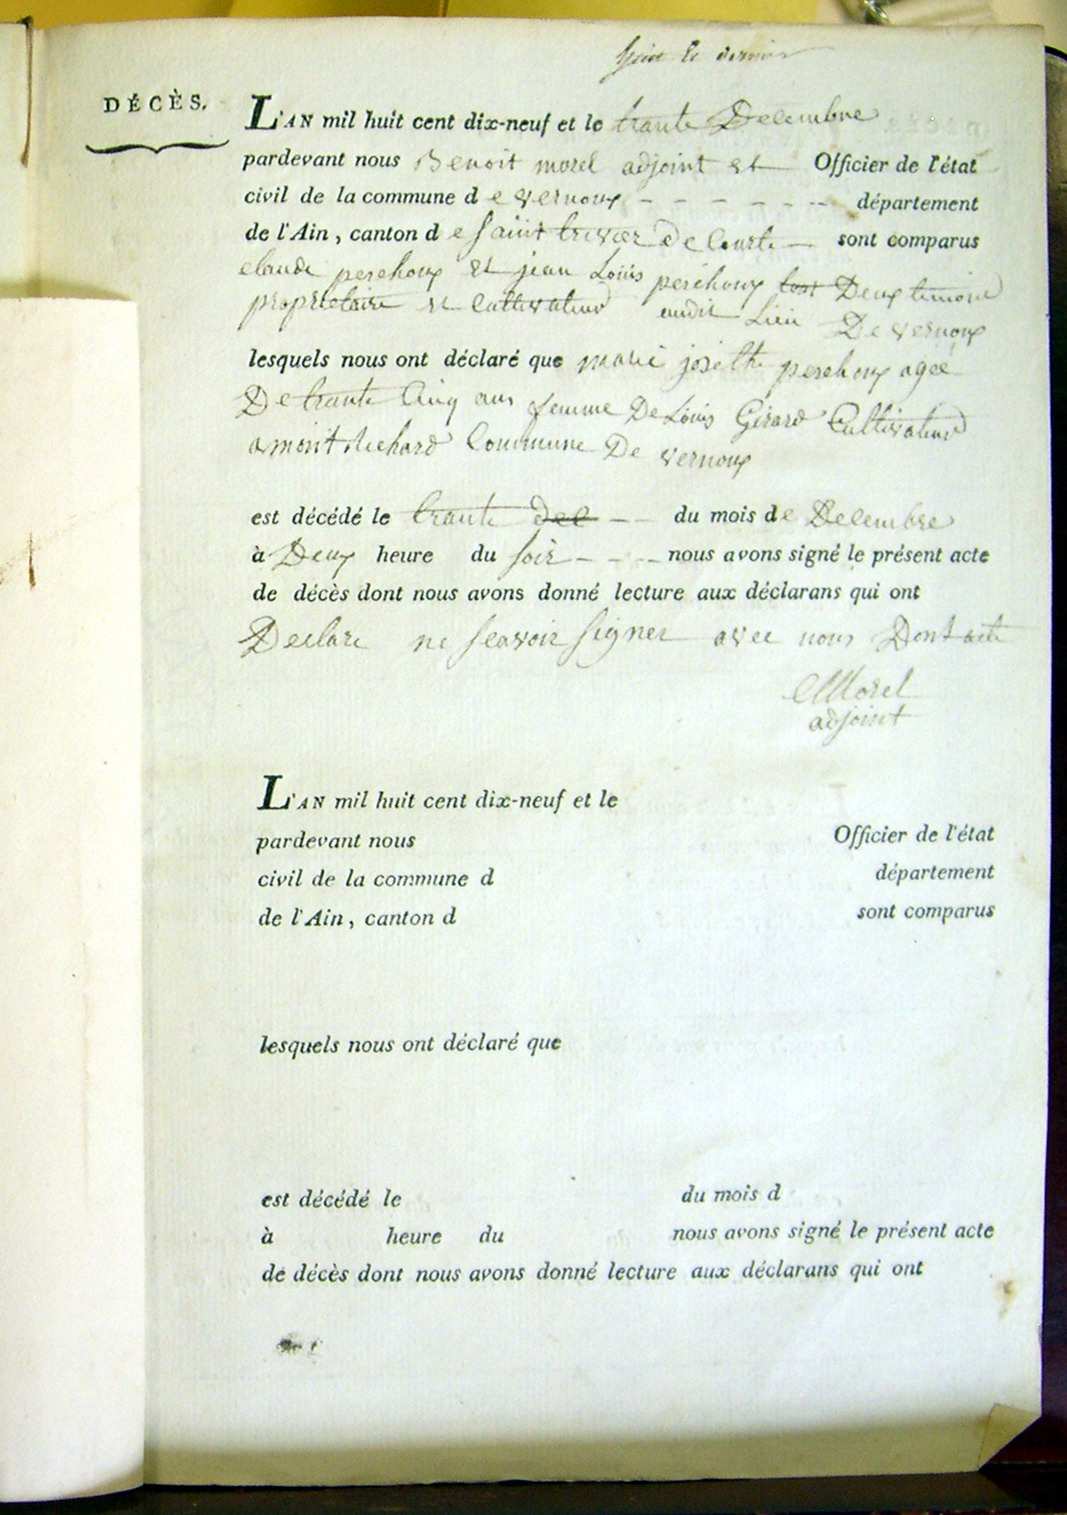 DÉCÈS.
L'AN mil huit cent dix-neuf et le trante Decembre
pardevant nous Benoit morel adjoint et Officier de l'état
civil de la commune de vernoux - - - - - - département
de l'Ain, canton de saint trivier de Courte — sont comparus
claude perchoux et jean Louis perchoux tout Deux timoin
proprietaire et Cultivateur audit Lieu De vernoux
lesquels nous ont déclaré que marie josethe perchoux agée
De trante Cinq ans femme De Louis Girard Cultivateur
a montrichard Commune De vernoux
est décédé le trante dec - - du mois de Decembre
à Deux heure du soir - - - nous avons signé le présent acte
de décès dont nous avons donné lecture aux déclarans qui ont
Declare ne seavoir signer avec nous Dont acte
Morel
adjoint
L'AN mil huit cent dix-neuf et le
pardevant nous Officier de l'état
civil de la commune d département
de l'Ain, canton d sont comparus
lesquels nous ont déclaré que
est décédé le du mois d
à heure du nous avons signé le présent acte
de décès dont nous avons donné lecture aux déclarans qui ont